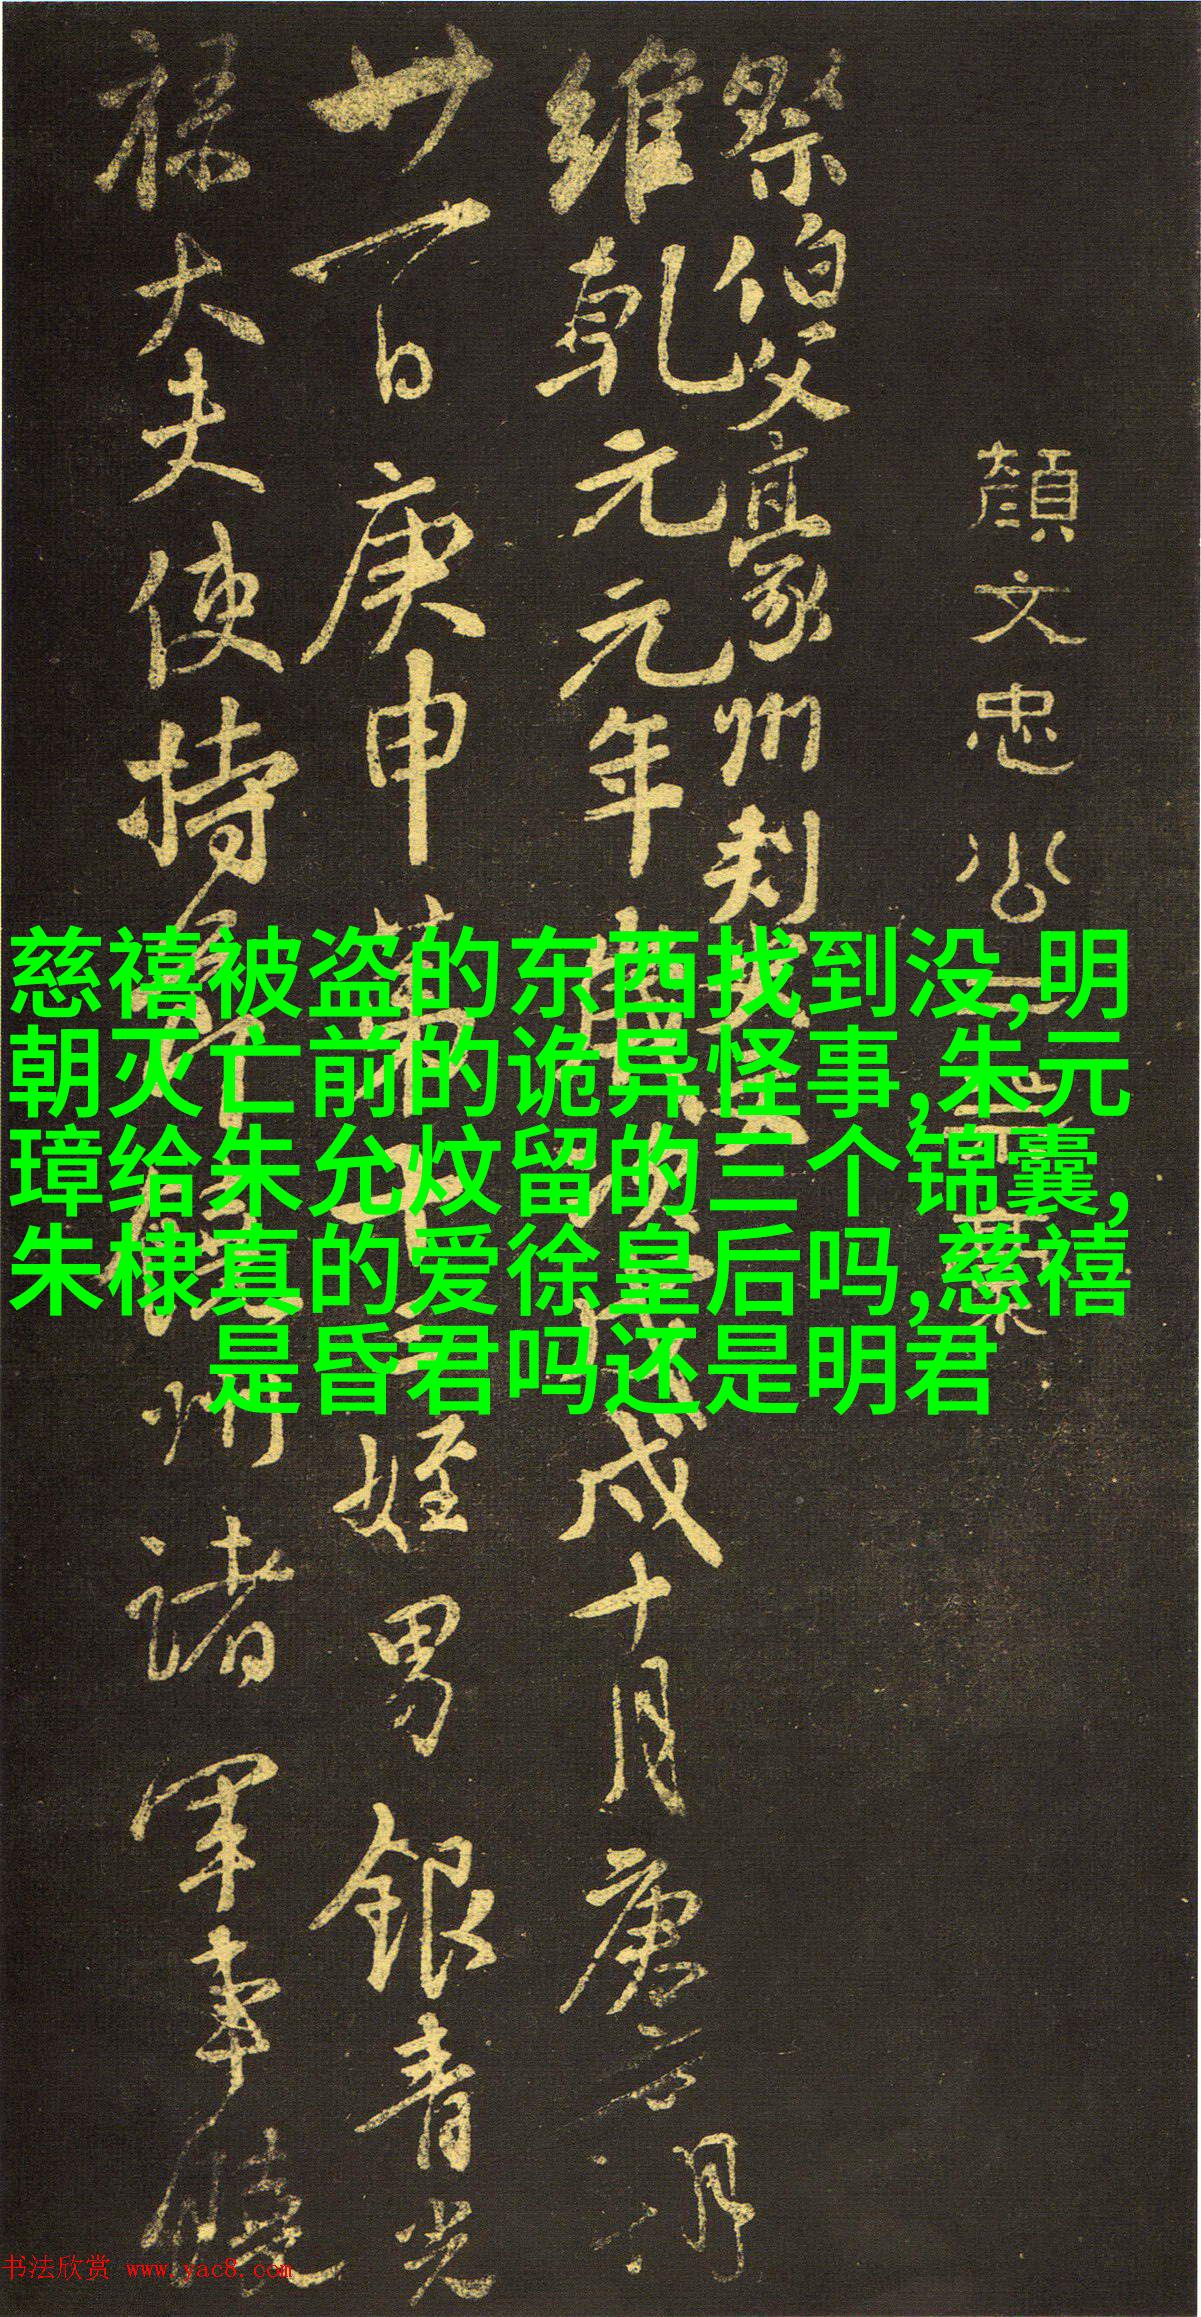 顏文忠公
祭伯父豪州刺史
維乾元元年歲次戊戌十月庚
廿一日庚申第十三姪男銀青光
祿大夫使持節 州諸軍事饒
慈禧被盗的东西找到没,明
朝灭亡前的诡异怪事,朱元
璋给朱允炆留的三个锦囊,
朱棣真的爱徐皇后吗,慈禧
是昏君吗还是明君
书法欣赏 www.yac8.com